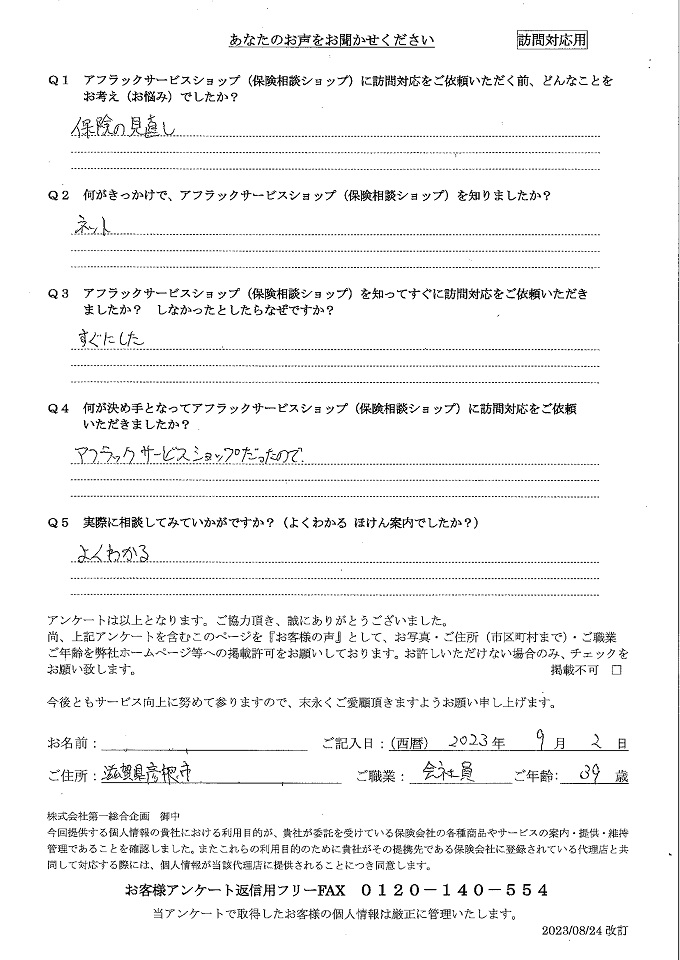 あなたのお声をお聞かせください
訪問対応用
Q1 アフラックサービスショップ（保険相談ショップ）に訪問対応をご依頼いただく前、どんなことを
お考え（お悩み）でしたか？
保険の見直し
Q2 何がきっかけで、アフラックサービスショップ（保険相談ショップ）を知りましたか？
ネット
Q3 アフラックサービスショップ（保険相談ショップ）を知ってすぐに訪問対応をご依頼いただき
ましたか？ しなかったとしたらなぜですか？
すぐにした
Q4 何が決め手となってアフラックサービスショップ（保険相談ショップ）に訪問対応をご依頼
いただきましたか？
アフラックサービスショップだったので.
Q5 実際に相談してみていかがですか？（よくわかる ほけん案内でしたか？）
よくわかる
アンケートは以上となります。ご協力頂き、誠にありがとうございました。
尚、上記アンケートを含むこのページを『お客様の声』として、お写真・ご住所（市区町村まで）・ご職業
ご年齢を弊社ホームページ等への掲載許可をお願いしております。お許しいただけない場合のみ、チェックを
お願い致します。 掲載不可 □
今後ともサービス向上に努めて参りますので、末永くご愛顧頂きますようお願い申し上げます。
お名前： ご記入日：（西暦） 2023 年 9 月 2 日
ご住所：滋賀県彦根市 ご職業： 会社員 ご年齢: 39 歳
株式会社第一総合企画 御中
今回提供する個人情報の貴社における利用目的が、貴社が委託を受けている保険会社の各種商品やサービスの案内・提供・維持
管理であることを確認しました。またこれらの利用目的のために貴社がその提携先である保険会社に登録されている代理店と共
同して対応する際には、個人情報が当該代理店に提供されることにつき同意します。
お客様アンケート返信用フリーFAX 0120－140－554
当アンケートで取得したお客様の個人情報は厳正に管理いたします。
2023/08/24 改訂